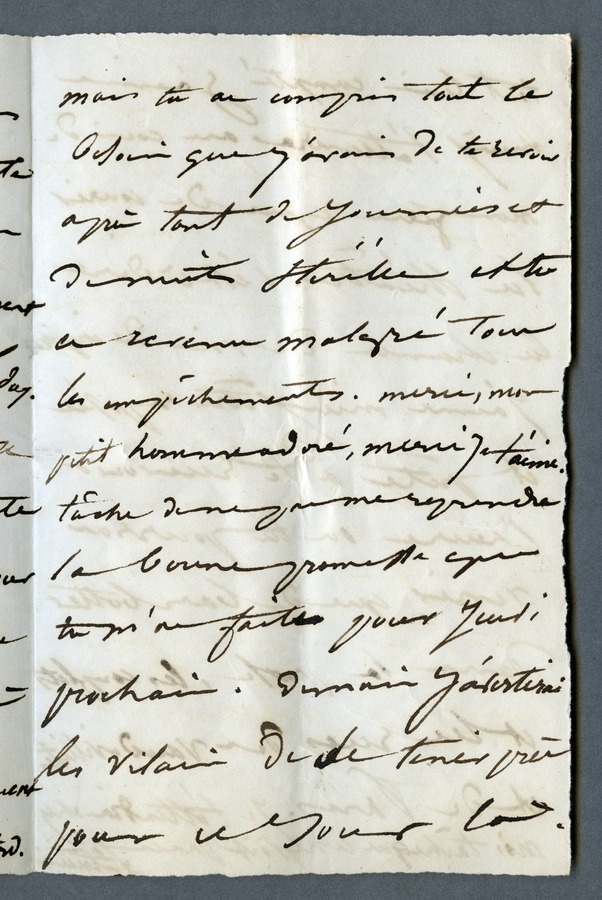 mais tu as compris tout le
besoin que j'avais de te revoir
après tant de journées et
de nuits stérilles et tu
es revenu malgré tous
les empêchements. merci, mon
petit homme adoré, merci je t'aime.
tâche de ne pas me reprendre
la bonne promesse que
tu m'as faite pour jeudi
prochain. Demain j'avertirai
les vilain de se tenir près
pour ce jour là.